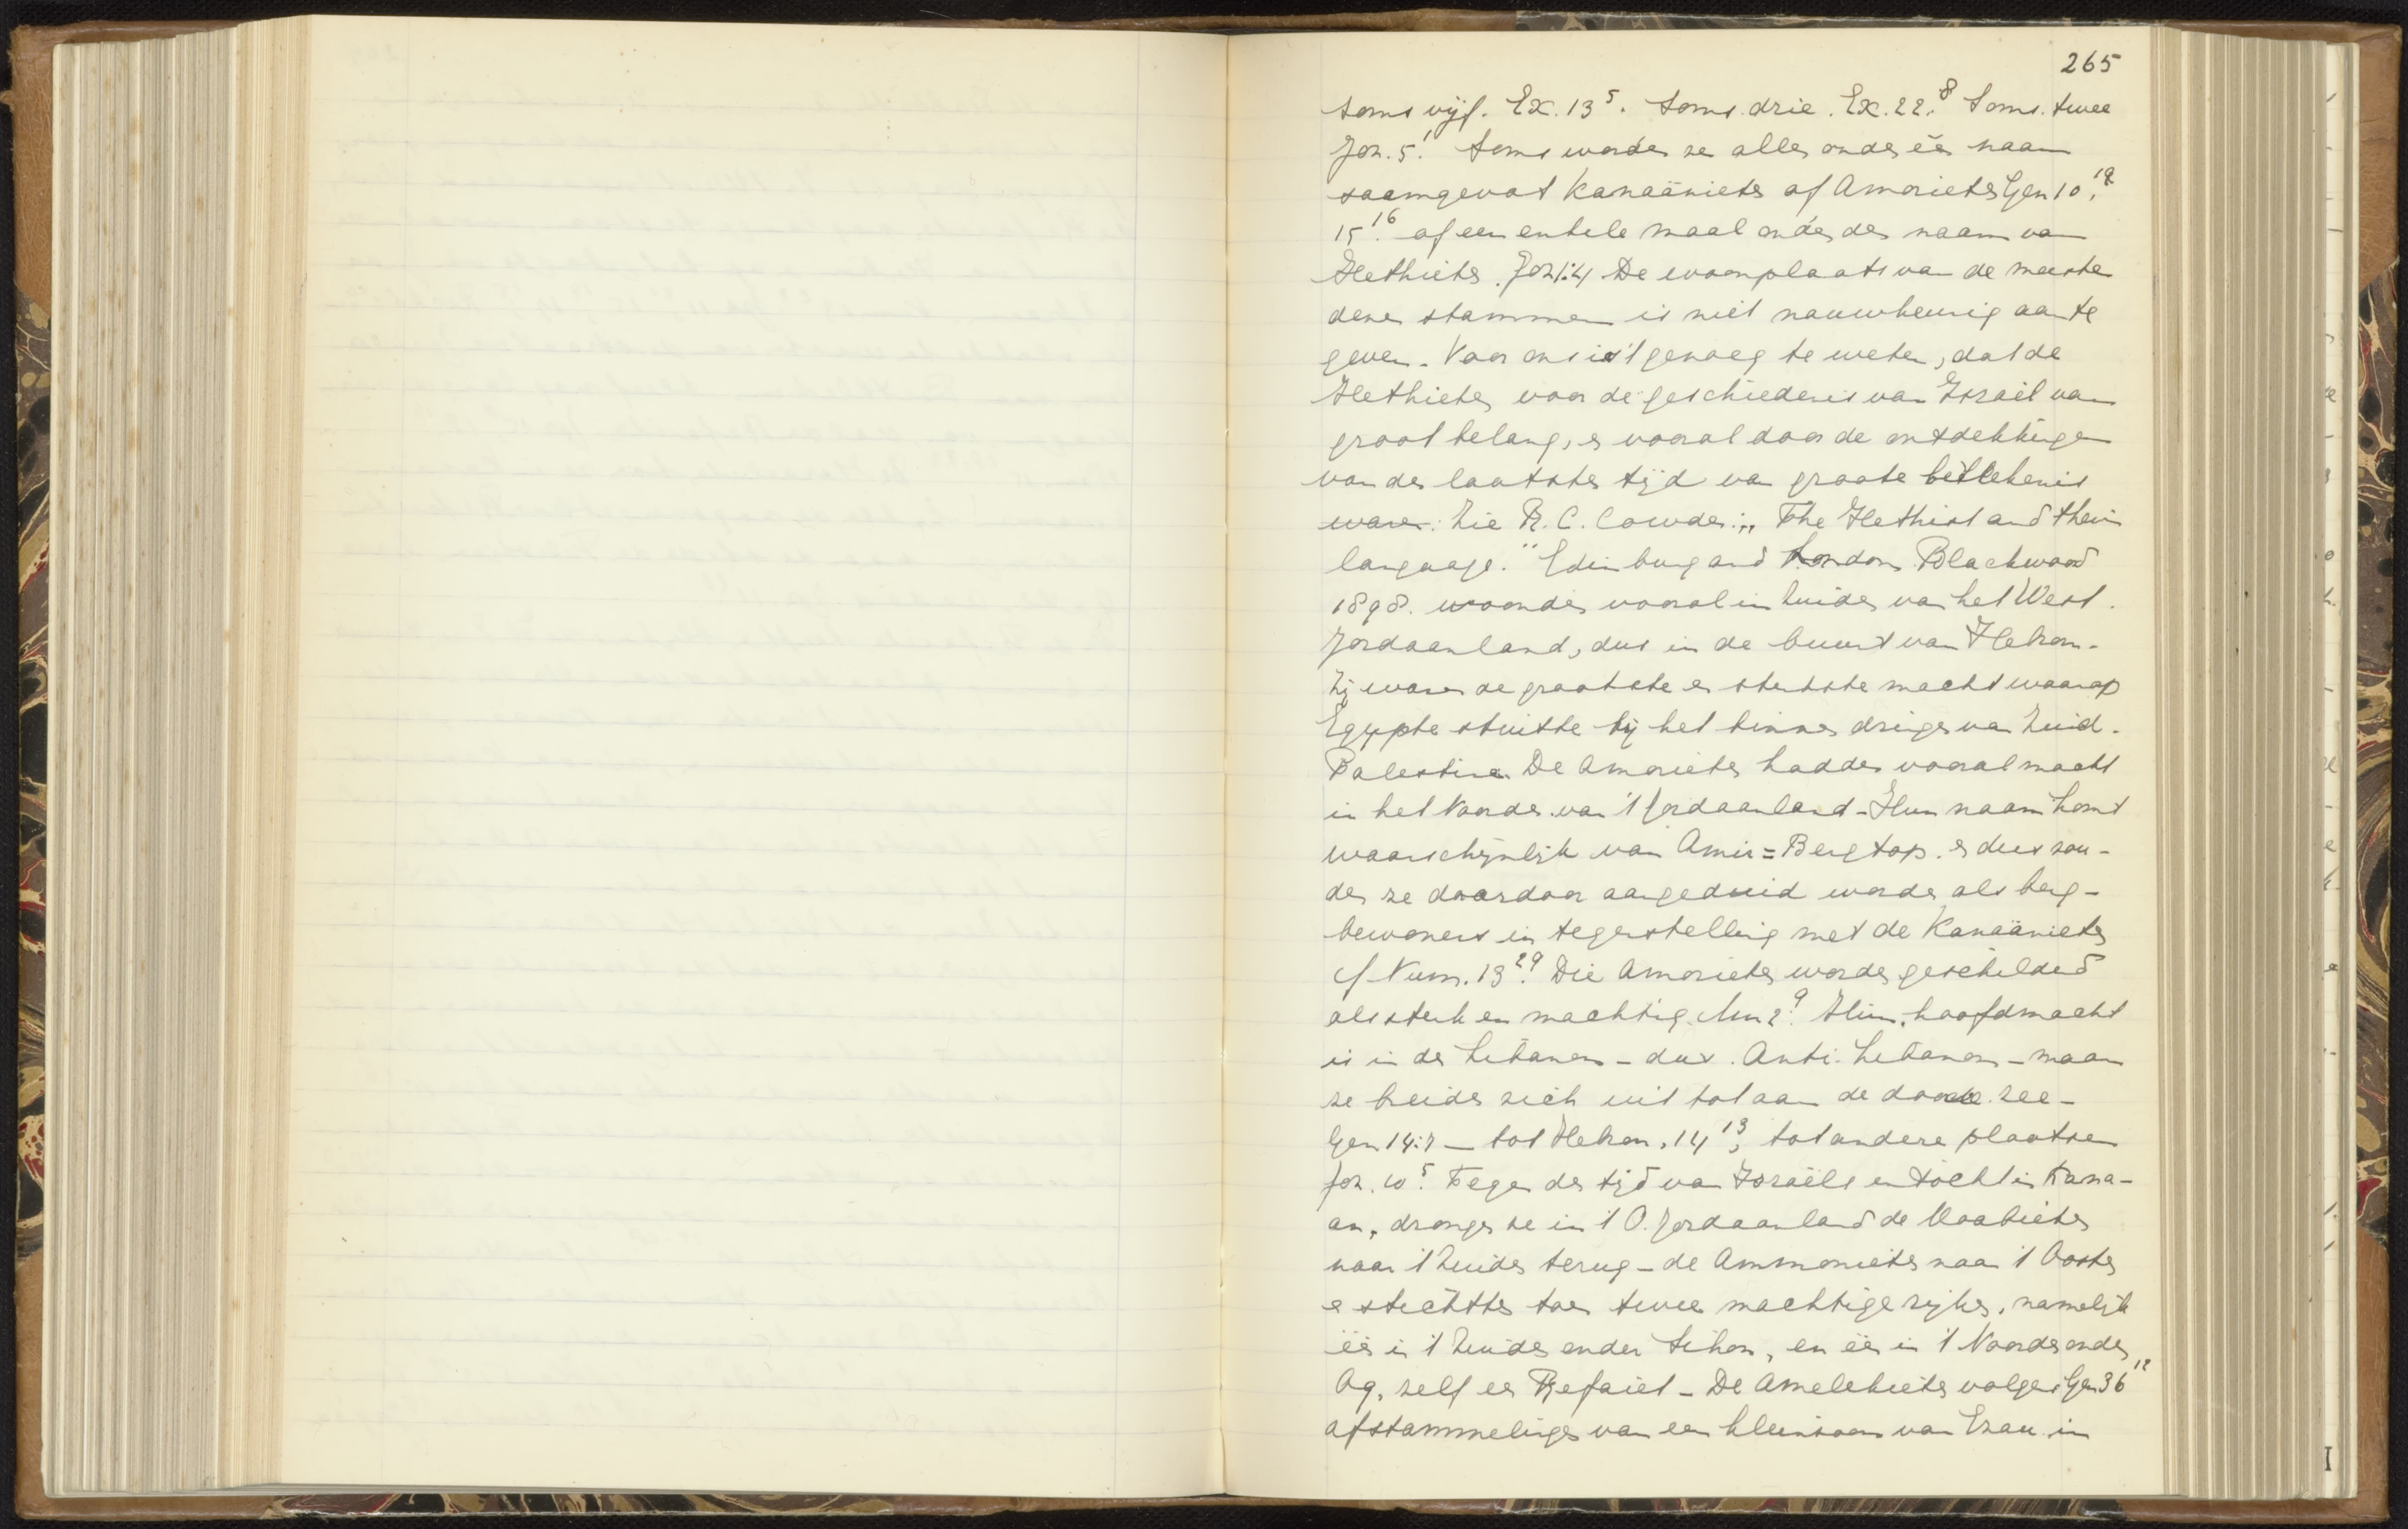 265
soms vijf. Ex. 13⁵. soms drie. Ex. 22.⁸ Soms twee
Joz. 5.¹ Soms worden ze allen onder één naam
saamgevat Kanaänieten of Amorieten Gen 10.¹⁹
15.¹⁶ of een enkele maal onder den naam van
Hethieten. Joz 1:4 De woonplaats van de meeste
dezer stammen is niet nauwkeurig aan te
geven. Voor ons is 't genoeg te weten, dat de
Hethieten voor de geschiedenis van Israël van
groot belang, en vooral door de ontdekkingen
van den laatsten tijd van groote beteekenis
waren. Zie R. C. Conder: „The Hethist and their
language." Edinburg and London. Blackwood
1898. woonden vooral in Zuiden van het West.
Jordaanland, dus in de buurt van Hebron.
Zij waren de grootste en sterkste macht waarop
Egypte stuitte bij het binnen dringen van Zuid.
Palestina. De Amorieten hadden vooral macht
in het Noorden van 't Jordaanland - Hun naam komt
waarschijnlijk van Amir = Bergtop. en dus zou-
den ze daardoor aangeduid worden als berg-
bewoners in tegenstelling met de Kanaänieten
cf Num. 13.²⁹ Die Amorieten worden geschilderd
als sterk en machtig. Am 2.⁹ Hun hoofdmacht
is in den Libanon - dus. Anti-Libanon - maar
ze breiden zich uit tot aan de doode zee -
Gen 14:7 - tot Hebron, 14¹³, tot andere plaatsen
Joz. 10.⁵ Tegen den tijd van Israëls intocht in Kana-
an, drongen ze in 't O. Jordaanland de Moabieten
naar 't Zuiden terug - de Ammonieten naar 't Oosten
en stichtten toen twee machtige rijken, namelijk
één in 't Zuiden onder Sihon, en één in 't Noorden onder
Og, zelf een Refaiet - De Amelekieten volgens Gen 36¹²
afstammelingen van een kleinzoon van Ezau in